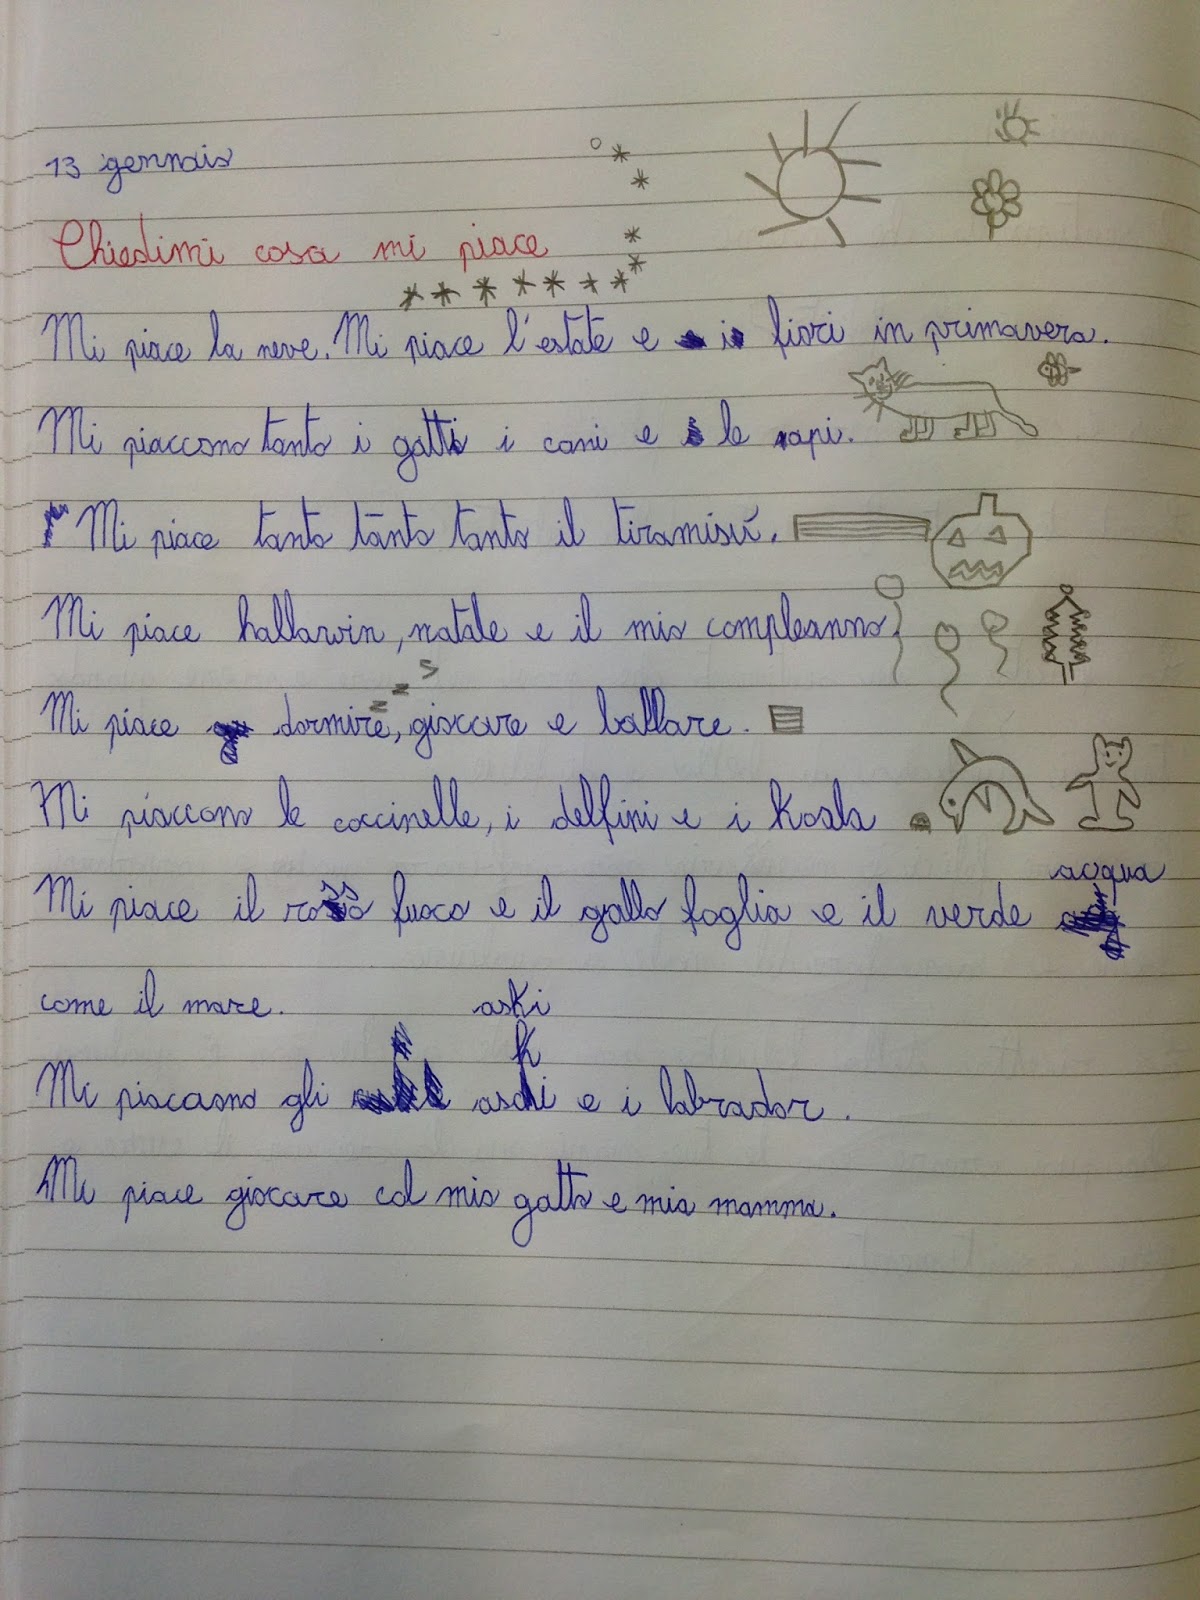 13 gennaio
Chiedimi cosa mi piace
Mi piace la neve. Mi piace l'estate e i fiori in primavera.
Mi piaccono tanto i gatti i cani e le api.
Mi piace tanto tanto tanto il tiramisú.
Mi piace hallawin, natale e il mio compleanno
z z z
Mi piace dormire, giocare e ballare.
Mi piaccono le coccinelle, i delfini e i koala
acqua
Mi piace il rosso fuoco e il giallo foglia e il verde
come il mare.
aski
k
Mi piaccaono gli aschi e i labrador.
Mi piace giocare col mio gatto e mia mamma.